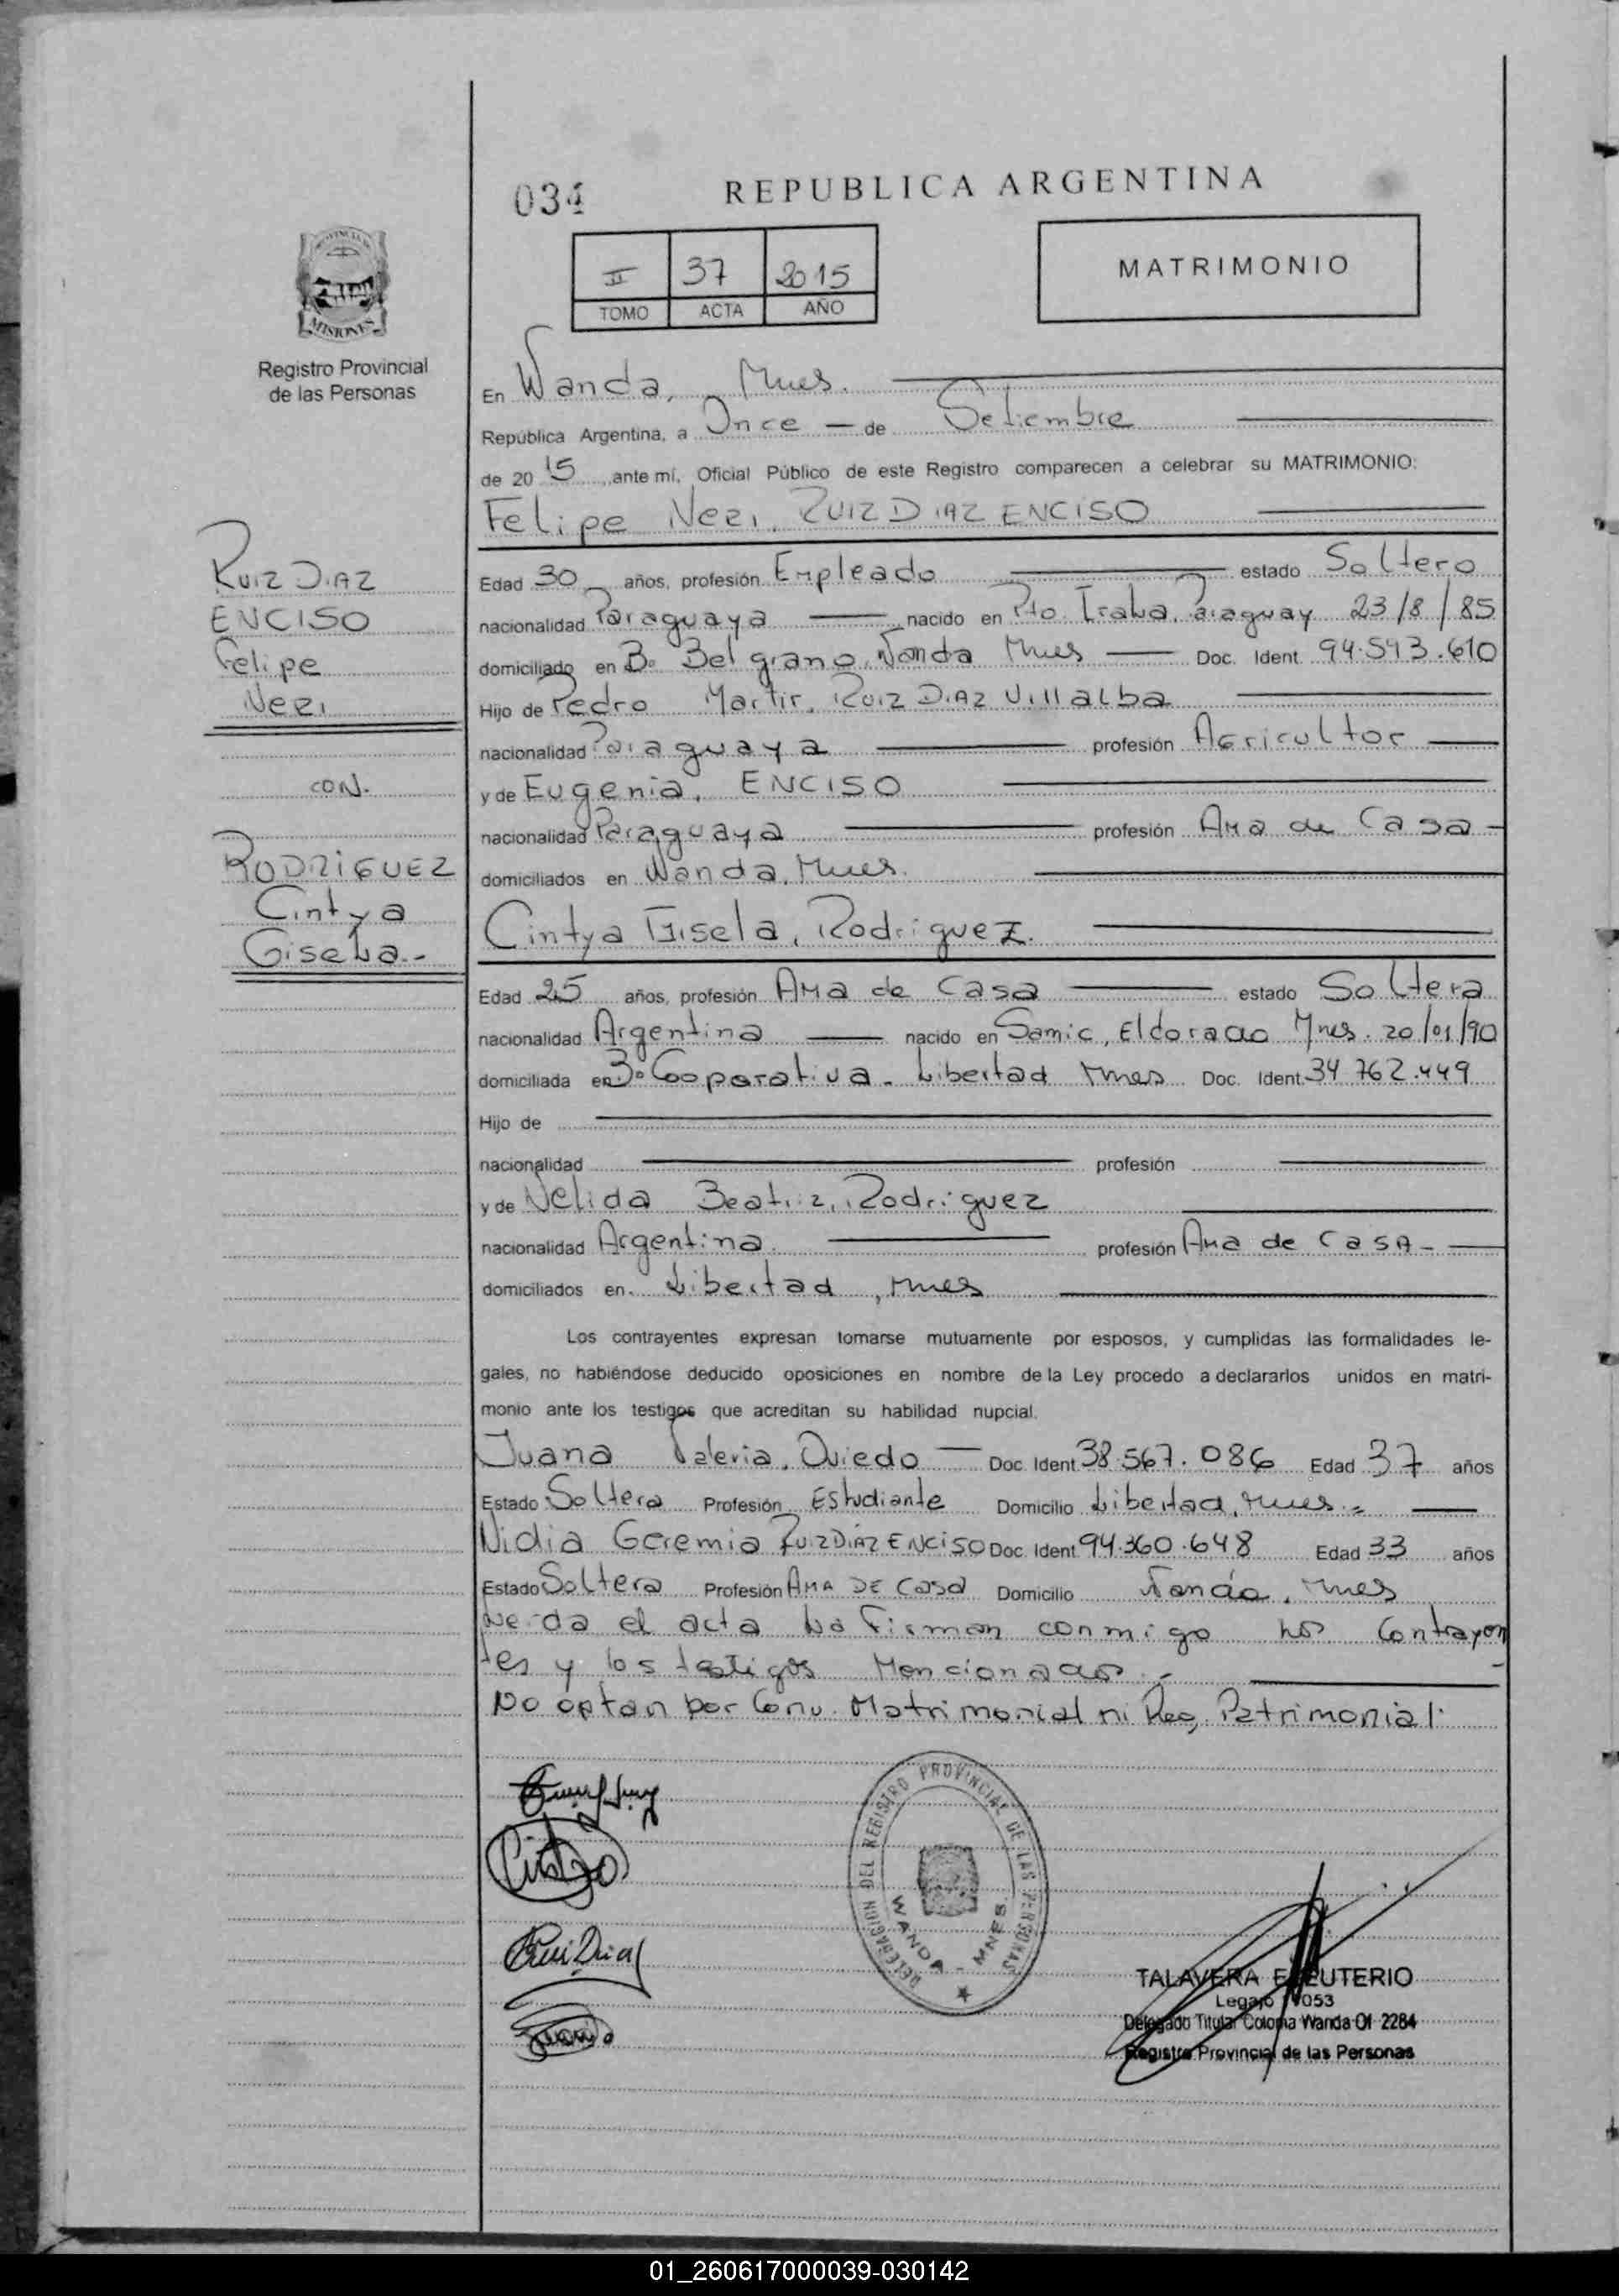 034
REPUBLICA ARGENTINA
MATRIMONIO
II 37 2015
TOMO ACTA AÑO
PROVINCIA DE
MISIONES
Registro Provincial
de las Personas
En Wanda, Mnes.
República Argentina, a Once de Setiembre
de 2015, ante mí, Oficial Público de este Registro comparecen a celebrar su MATRIMONIO:
Felipe Neri, RUIZ DIAZ ENCISO
RUIZ DIAZ
ENCISO
Felipe
Neri
CON.
RODRIGUEZ
Cintya
Gisela.-
Edad 30 años, profesión Empleado estado Soltero
nacionalidad Paraguaya nacido en Pto. Paraguay 23/8/85
domiciliado en B° Belgrano, Wanda Mnes Doc. Ident. 94.543.610
Hijo de Pedro Martir, RUIZ DIAZ Villalba
nacionalidad Paraguaya profesión Agricultor
y de Eugenia, ENCISO
nacionalidad Paraguaya profesión Ama de Casa -
domiciliados en Wanda, Mnes.
Cintya Gisela, Rodriguez.
Edad 25 años, profesión Ama de Casa estado Soltera
nacionalidad Argentina nacido en Samic, Eldorado Mnes. 20/01/90
domiciliada en B° Cooparativa - Libertad Mnes Doc. Ident. 34.762.449
Hijo de
nacionalidad profesión
y de Nelida Beatriz, Rodriguez
nacionalidad Argentina. profesión Ama de CASA -
domiciliados en. Libertad, Mnes
Los contrayentes expresan tomarse mutuamente por esposos, y cumplidas las formalidades le-
gales, no habiéndose deducido oposiciones en nombre de la Ley procedo a declararlos unidos en matri-
monio ante los testigos que acreditan su habilidad nupcial.
Juana Valeria, Oviedo Doc. Ident. 38.567.086 Edad 37 años
Estado Soltera Profesión Estudiante Domicilio Libertad, Mnes.-
Nidia Geremia RUIZ DIAZ ENCISO Doc. Ident. 94.360.648 Edad 33 años
Estado Soltera Profesión AMA DE Casa Domicilio Wanda, Mnes
Leida el acta la Firman conmigo los Contrayen
tes y los testigos Mencionados.-
No optan por Conv. Matrimonial ni Reg. Patrimonial.
DELEGACION DEL REGISTRO PROVINCIAL DE LAS PERSONAS
WANDA - MNES.
Ruiz Diaz
TALAVERA ELEUTERIO
Legajo
Delegado Titular Colonia Wanda Of 2284
Registro Provincial de las Personas
01_260617000039-030142